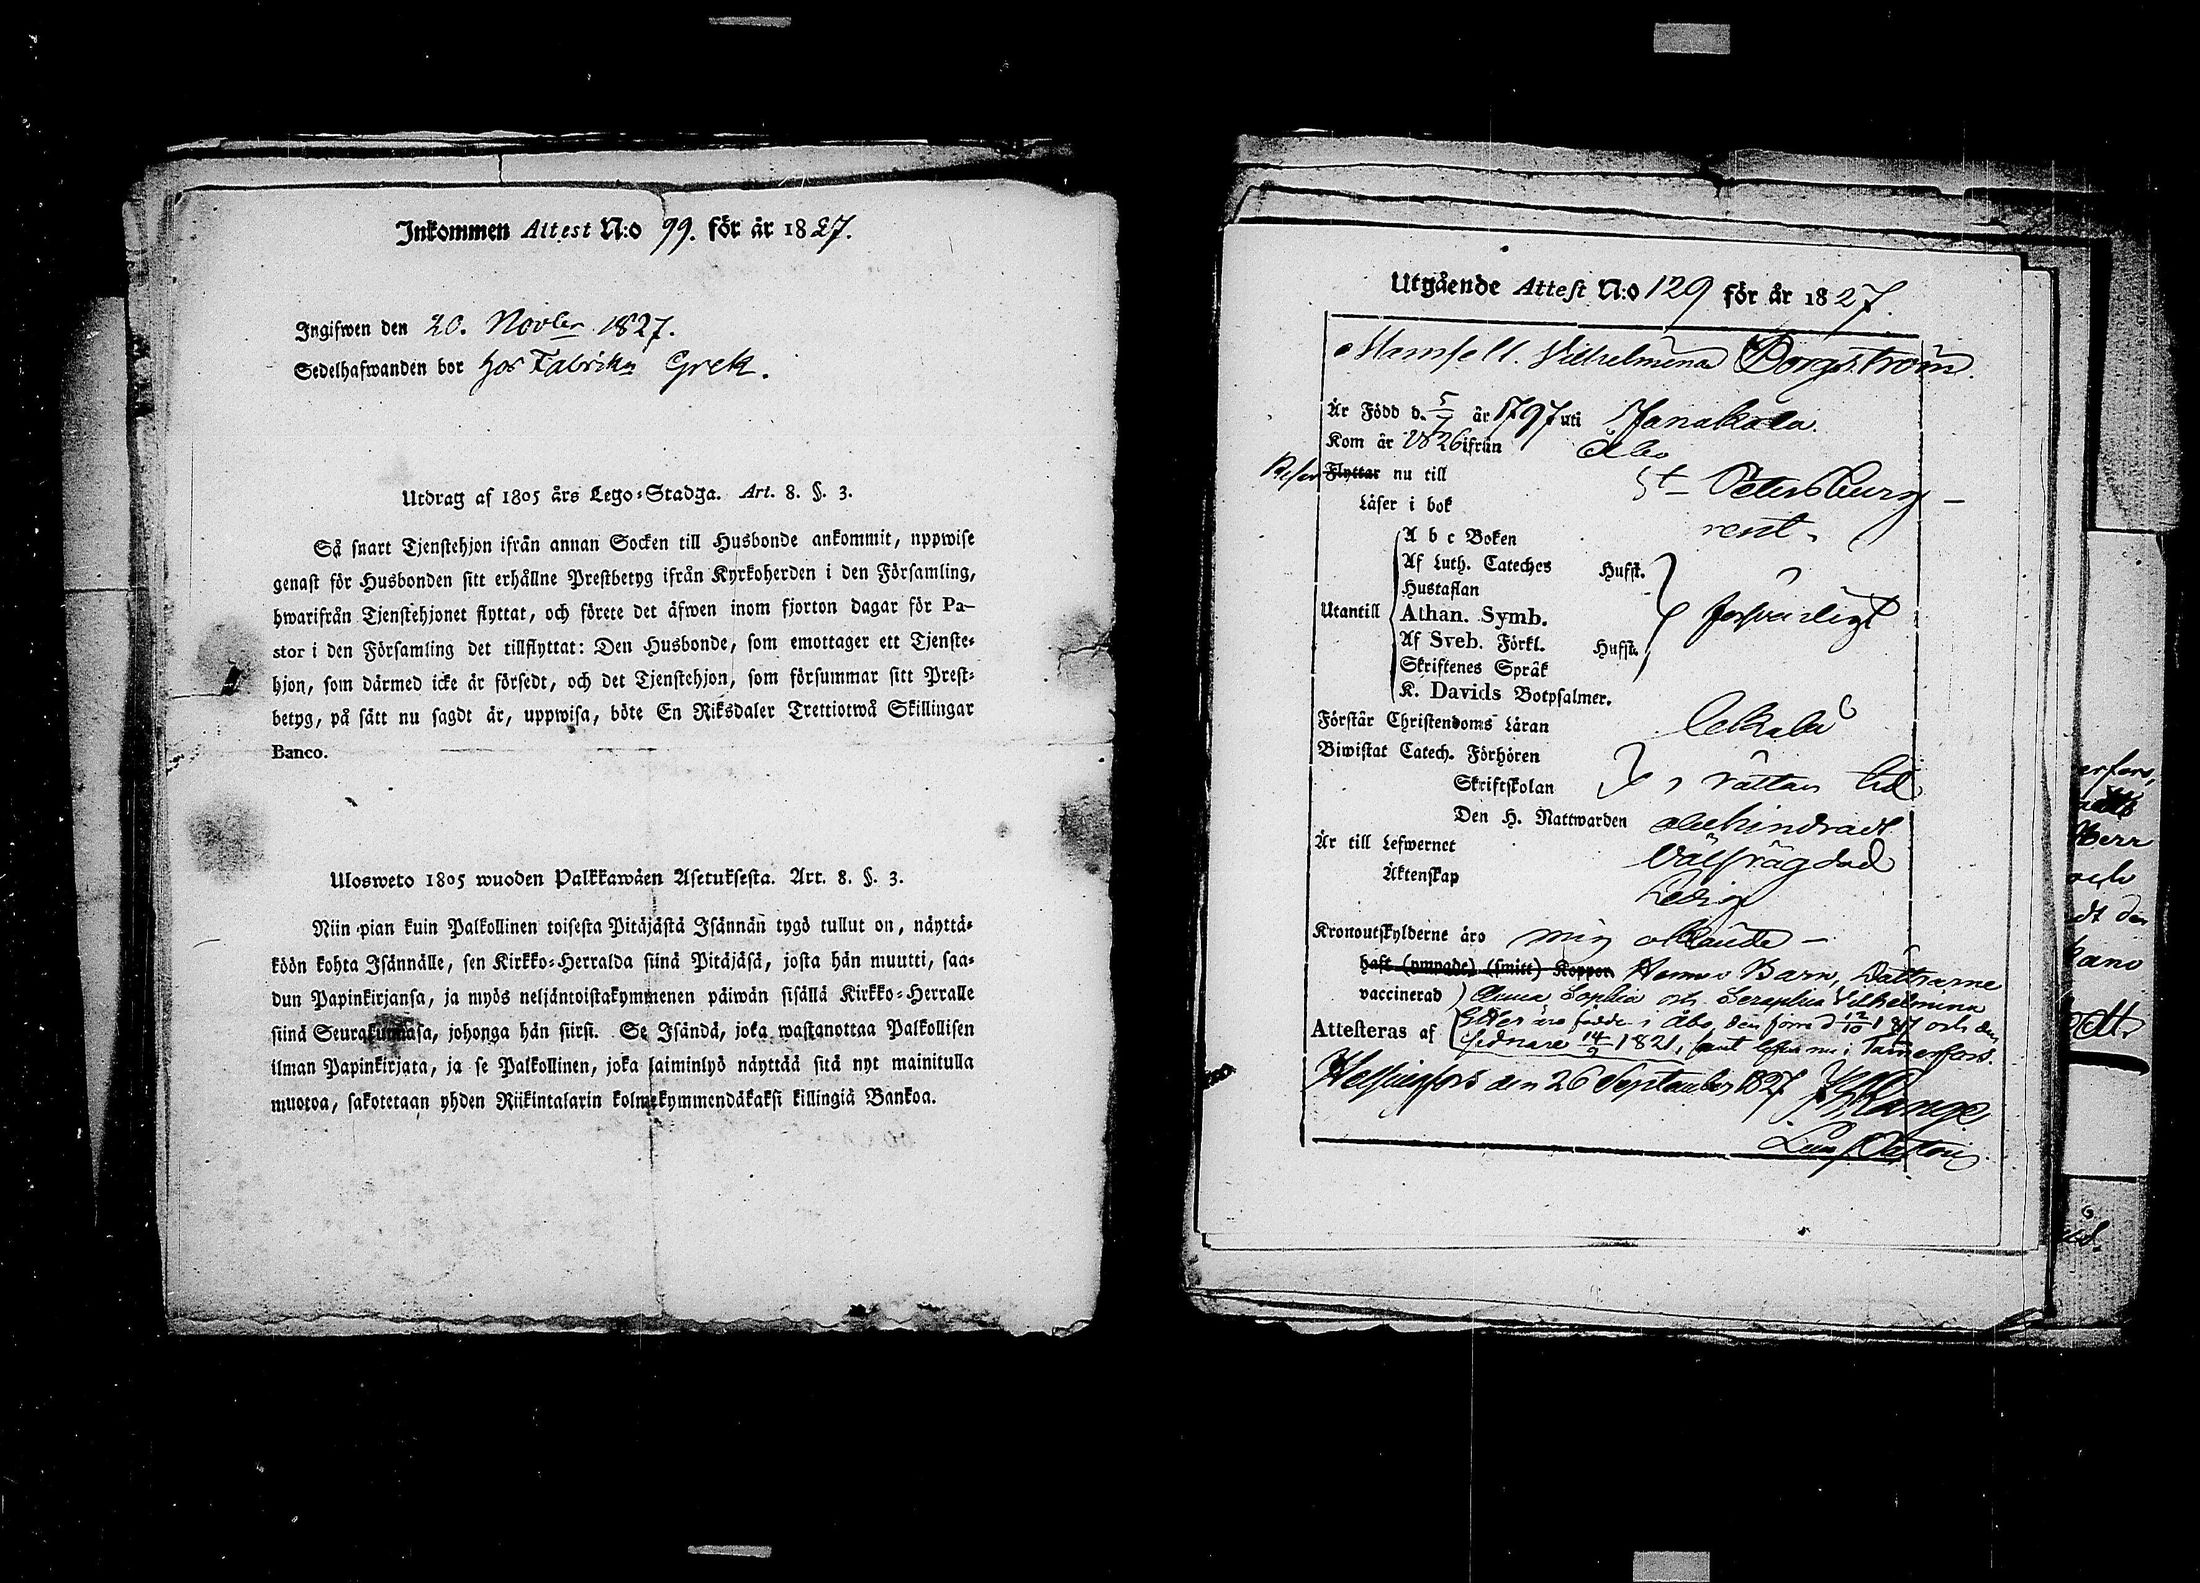 Inkommen Attest N:o 99. för år 1827.
Ingifwen den 20. Novber 1827.
Sedelhafwanden bor hos Fabrikn Grek.
Utdrag af 1805 års Lego-Stadga. Art. 8. §. 3.
Så snart Tjenstehjon ifrån annan Socken till Husbonde ankommit, uppwise
genast för Husbonden sitt erhållne Prestbetyg ifrån Kyrkoherden i den Församling,
hwarifrån Tjenstehjonet flyttat, och förete det äfwen inom fjorton dagar för Pa-
stor i den Församling det tillflyttat: Den Husbonde, som emottager ett Tjenste-
hjon, som därmed icke är försedt, och det Tjenstehjon, som försummar sitt Prest-
betyg, på sätt nu sagdt är, uppwisa, böte En Riksdaler Trettiotwå Skillingar
Banco.
Ulosweto 1805 wuoden Palkkawäen Asetuksesta. Art. 8. §. 3.
Niin pian kuin Palkollinen toisesta Pitäjästä Isännän tygö tullut on, näyttä-
köön kohta Isännälle, sen Kirkko-Herralda siinä Pitäjäsä, josta hän muutti, saa-
dun Papinkirjansa, ja myös neljäntoistakymmenen päiwän sisällä Kirkko-Herralle
siinä Seurakunnasa, johonga hän siirsi. Se Isändä, joka wastanottaa Palkollisen
ilman Papinkirjata, ja se Palkollinen, joka laiminlyö näyttää sitä nyt mainitulla
muotoa, sakotetaan yhden Riikintalarin kolmekymmendäkaksi killingiä Bankoa.
Utgående Attest N:o 129 för år 1827.
Mamsell. Vilhelmina Borgström.
Är Född d. 5/7 år 1797 uti Janakala.
Kom år 1826 ifrån Åbo
Reser Flyttar nu till St Petersburg -
Läser i bok rent.
A b c Boken
Af Luth. Cateches Hufst.
Hustaflan
Utantill Athan. Symb. försvarligt
Af Sveb. Förkl. Hufst.
Skriftenes Språk
K. Davids Botpsalmer.
Förstår Christendoms Läran
Biwistat Catech. Förhören
Skriftskolan i rättan tid
Den H. Nattwarden obehindradt
Är till Lefwernet välfrägdad
Äktenskap Ledig
Kronoutskylderne äro mig okände -
haft (ympade) (smitt) Koppor Hennes Barn, Döttrarne
vaccinerad Anna Sophia och Seraphia Vilhelmina
äro födde i Åbo, den förra d 12/10 1817 och den
Attesteras af sednare 14/9 1821, samt lefva nu i Tamerfors.
Helsingfors den 26 September 1827